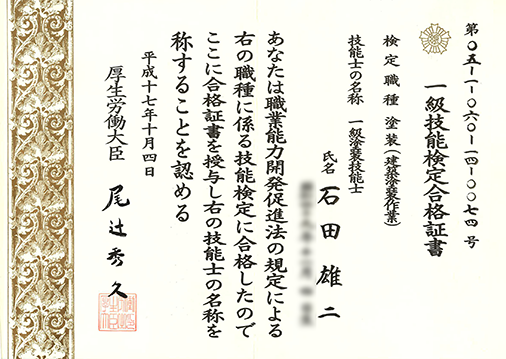 第０５-１-１-０６０-１４-００７４号
一級技能検定合格証書
検定職種 塗装(建築塗装作業)
技能士の名称 一級塗装技能士
氏名 石田雄二
あなたは職業能力開発促進法の規定による
右の職種に係る技能検定に合格したので
ここに合格証書を授与し右の技能士の名称を
称することを認める
平成十七年十月四日
厚生労働大臣 尾辻秀久